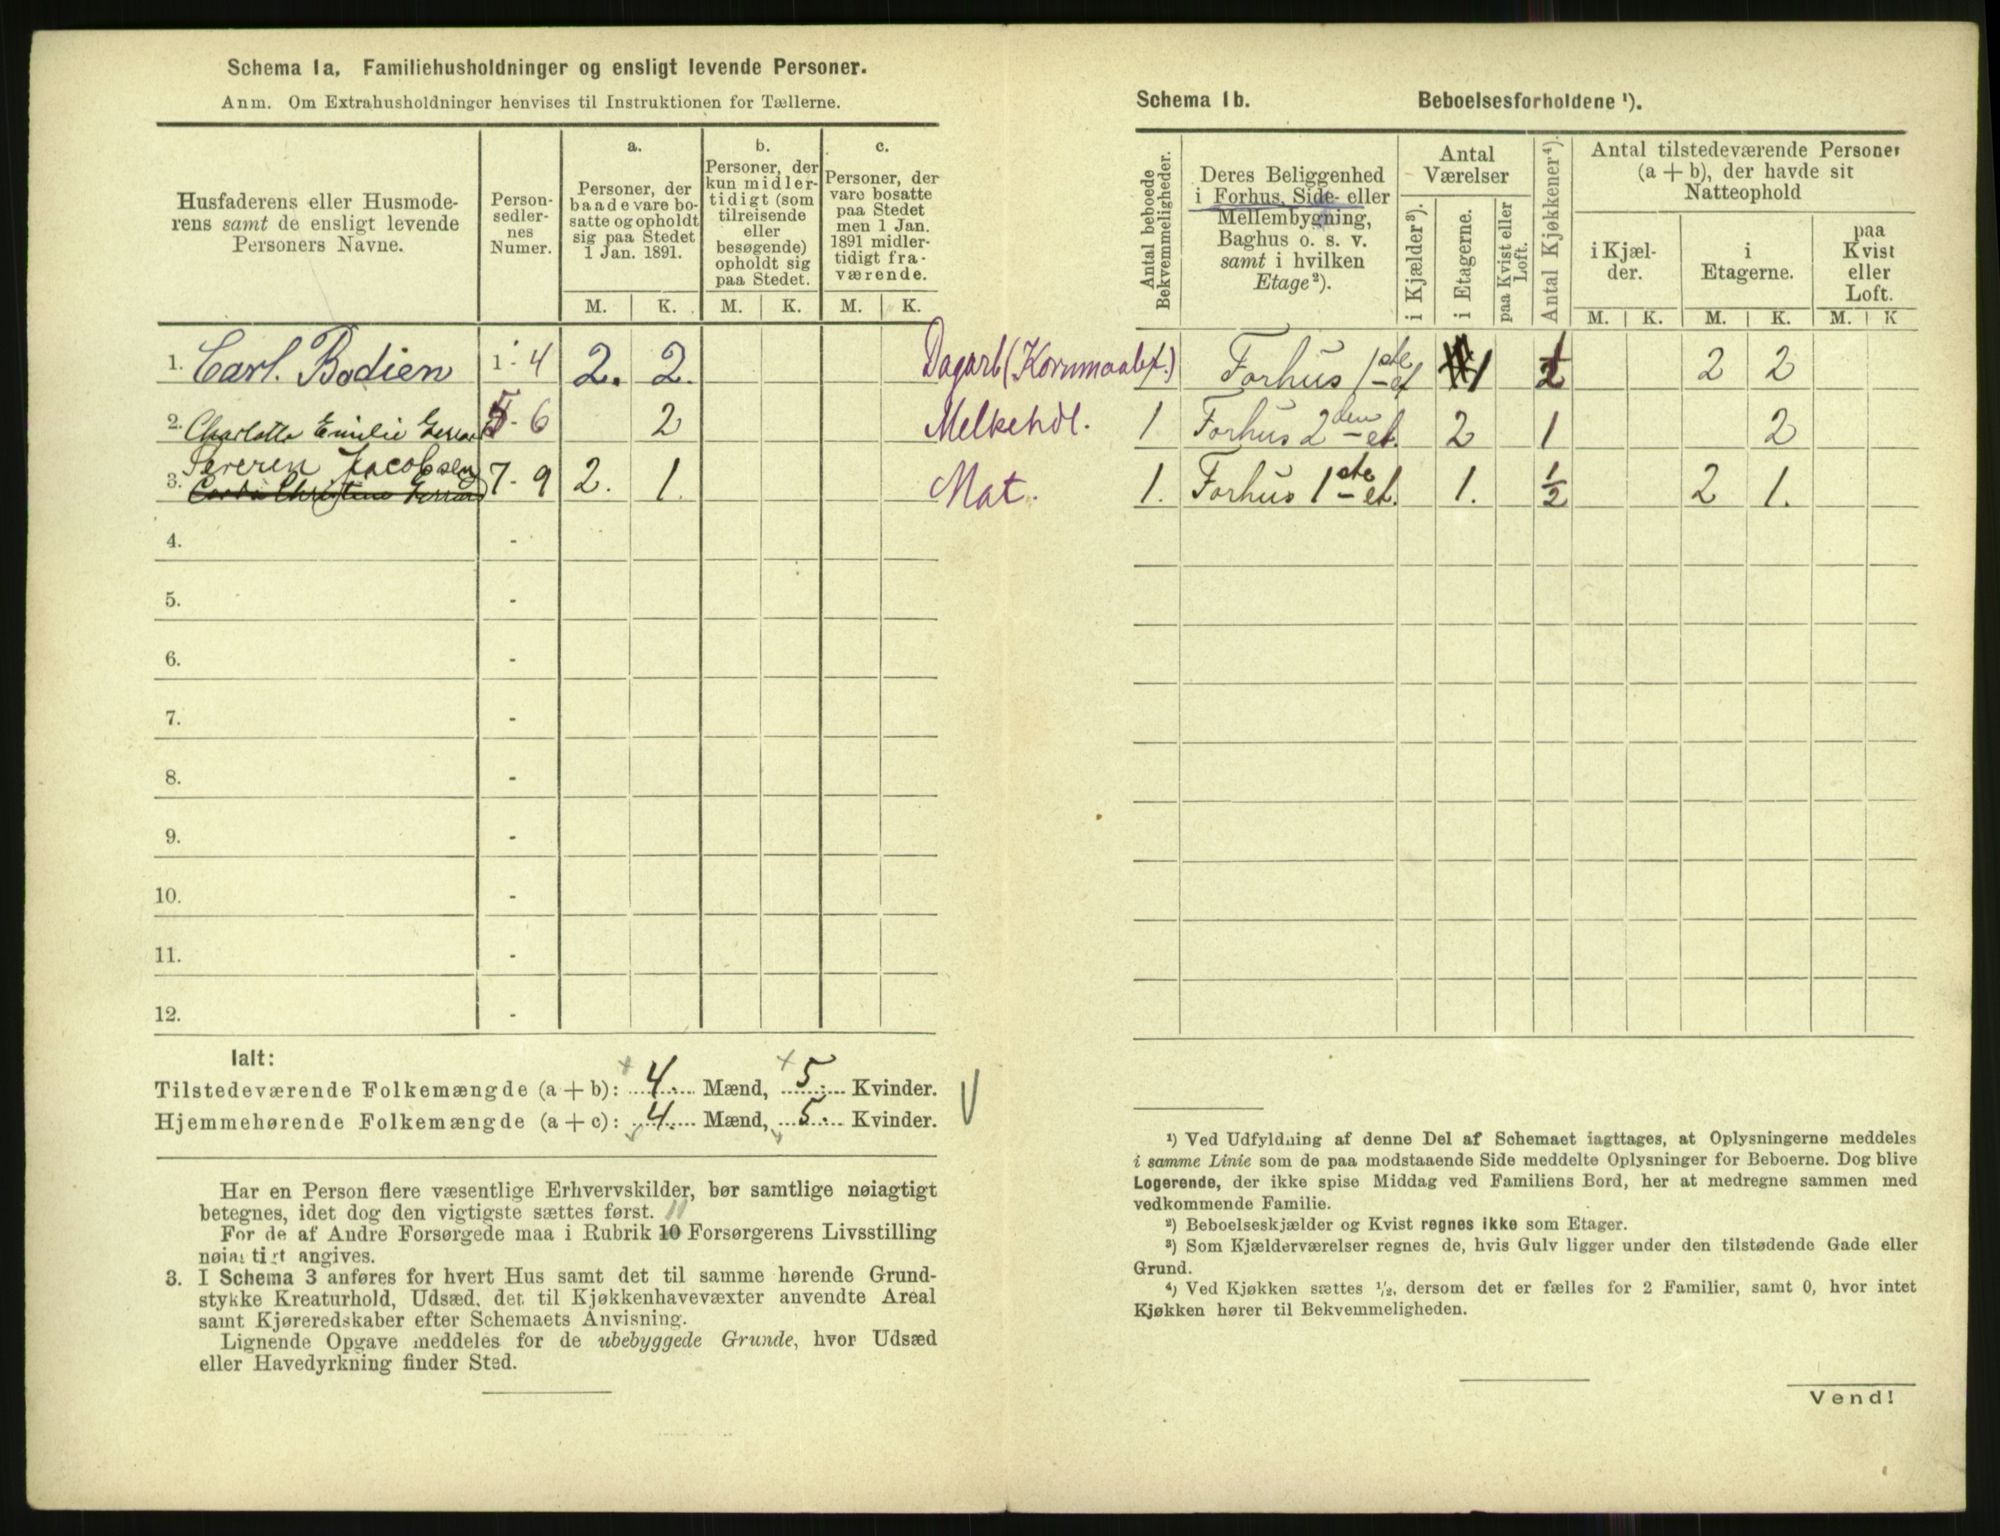 Schema 1a. Familiehusholdninger og ensligt levende Personer.
Anm. Om Extrahusholdninger henvises til Instruktionen for Tællerne.
Husfaderens eller Husmode-
rens samt de ensligt levende
Personers Navne.
Person-
sedler-
nes
Numer.
a.
Personer, der
baade vare bo-
satte og opholdt
sig paa Stedet
1 Jan. 1891.
b.
Personer, der
kun midler-
tidigt (som
tilreisende
eller
besøgende)
opholdt sig
paa Stedet.
c.
Personer, der
vare bosatte
paa Stedet
men 1 Jan.
1891 midler-
tidigt fra-
værende.
M. K. M. K. M. K.
1. Carl. Bodien 1 - 4 2. 2. Dagarb (Kornmaalf.)
2. Charlotte Emilie 5 - 6 2 Melkehdl.
Severen Jacobsen
3. 7 - 9 2. 1. Mat.
4. -
5. -
6. -
7. -
8. -
9. -
10. -
11. -
12. -
Ialt:
Tilstedeværende Folkemængde (a + b): 4. Mænd, 5. Kvinder.
Hjemmehørende Folkemængde (a + c): 4. Mænd, 5. Kvinder.
Har en Person flere væsentlige Erhvervskilder, bør samtlige nøiagtigt
betegnes, idet dog den vigtigste sættes først. 11
For de af Andre Forsørgede maa i Rubrik 10 Forsørgerens Livsstilling
nøiagtigt angives.
3. I Schema 3 anføres for hvert Hus samt det til samme hørende Grund-
stykke Kreaturhold, Udsæd, det til Kjøkkenhavevæxter anvendte Areal
samt Kjøreredskaber efter Schemaets Anvisning.
Lignende Opgave meddeles for de ubebyggede Grunde, hvor Udsæd
eller Havedyrkning finder Sted.
Schema 1b. Beboelsesforholdene ¹).
Antal beboede
Bekvemmeligheder.
Deres Beliggenhed
i Forhus, Side- eller
Mellembygning,
Baghus o. s. v.
samt i hvilken
Etage²).
Antal
Værelser
i Kjælder³).
i Etagerne.
paa Kvist eller
Loft.
Antal Kjøkkener⁴).
Antal tilstedeværende Personer
(a + b), der havde sit
Natteophold
i Kjæl-
der.
i
Etagerne.
paa
Kvist
eller
Loft.
M. K. M. K. M. K
Forhus 1ste et 1 2 2
1 Forhus 2den et. 2 1 2
1. Forhus 1ste et. 1. ½ 2 1.
¹) Ved Udfyldning af denne Del af Schemaet iagttages, at Oplysningerne meddeles
i samme Linie som de paa modstaaende Side meddelte Oplysninger for Beboerne. Dog blive
Logerende, der ikke spise Middag ved Familiens Bord, her at medregne sammen med
vedkommende Familie.
²) Beboelseskjælder og Kvist regnes ikke som Etager.
³) Som Kjælderværelser regnes de, hvis Gulv ligger under den tilstødende Gade eller
Grund.
⁴) Ved Kjøkken sættes ½, dersom det er fælles for 2 Familier, samt 0, hvor intet
Kjøkken hører til Bekvemmeligheden.
Vend!